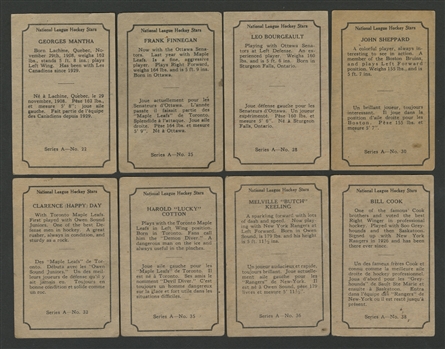 National League Hockey Stars
GEORGES MANTHA
Born Lachine, Quebec, November
29th, 1908, weighs 163
lbs., stands 5 ft., 8 ins.; plays
Left Wing. Has been with Les
Canadiens since 1929.
Né à Lachine, Quebec, le 29
novembre, 1908. Pèse 163 lbs.,
et mesure 5' 8"; joue aile
gauche. Fait partie de l'equipe
des Canadiens depuis 1929.
Series A—No.
National League Hockey Stars
FRANK FINNEGAN
Now with the Ottawa Senators.
Last year with Maple
Leafs. Is a fine, aggressive
player. Plays Right Forward,
weighs 164 lbs., and is 5 ft. 9
ins. Born in Ottawa.
Joue actuellement pour les
Senateurs d'Ottawa. L'année
passée il faisait partie des
"Maple Leafs" de Toronto.
Splendide à l'attaque. Joue aile
droite. Pèse 164 lbs. et mesure
5' 9". Né à Ottawa.
Series A—No.
National League Hockey Stars
LEO BOURGEAULT
Playing with Ottawa Senators
at Left Defense. An experienced
player. Weighs 160
lbs. and is 5 ft. 6 ins. Born in
Sturgeon Falls, Ontario.
Joue défense gauche pour les
Senateurs d'Ottawa. Un joueur
expérimenté. Pèse 160 lbs. et
mesure 5' 6". Né à Sturgeon
Falls, Ontario.
Series A—No.
National League Hockey Stars
JOHN SHEPPARD
A colorful player, always interesting
to see in action. A
member of the Boston Bruins,
and plays Left Forward
position. Weighs 155 lbs., and is
5 ft. 7 ins.
Un brillant joueur, toujours
intéressant. Il joue dans la
position d'aile droite pour les
Boston. Pèse 155 lbs. et
mesure 5' 7".
Series A—No.
National League Hockey Stars
CLARENCE (HAPPY) DAY
With Toronto Maple Leafs
First played with Owen Sound
Juniors. One of the best Defense
men in hockey. A great
rusher, always in condition, and
sturdy as a rock.
Des "Maple Leafs" de Toronto.
Débute avec les "Owen
Sound Juniors". Un des meilleurs
joueurs de défense qu'il y
ait jamais eu. Toujours en
bonne condition et solide
comme un roc.
Series A—No.
National League Hockey Stars
HAROLD "LUCKY"
COTTON
Plays with the Toronto Maple
Leafs in Left Wing position.
Born in Toronto. Fans call
him the "Demon Diver". A
dangerous man on the ice and
always useful in the pinches.
Joue aile gauche pour les
"Maple Leafs" de Toronto. Il
est né à Toronto. Ses amis le
nomment "Devil Diver". C'est
toujours un homme dangereux
sur la glace et fort utile dans les
situations difficiles.
Series A—No.
National League Hockey Stars
MELVILLE "BUTCH"
KEELING
A sparkling forward with lots
of dash and speed. Now playing
with New York Rangers
at Left Forward. Born in
Owen Sound, 170 lbs. and his height
is 5 ft. 11½ ins.
Un joueur endurant et rapide,
toujours brillant. Joue actuellement,
aile gauche pour les
"Rangers" de New-York. Il
est né à Owen Sound, pèse 170
livres et mesure 5' 11½".
Series A—No.
National League Hockey Stars
BILL COOK
One of the famous Cook
brothers and voted the best
Right Winger in professional
hockey. Played with Soo Greyhounds
and then Saskatoon.
Signed up with New York
Rangers in 1926 and has been
there ever since.
Un des fameux frères Cook et
reconnu comme le meilleure aile
droite du hockey professionnel.
Joua d'abord pour les "Greyhounds"
de Sault Ste Marie et
ensuite à Saskatoon. Entra
dans l'équipe des "Rangers" de
New-York en 1926 et l'est resté jusqu'à
présent.
Series A—No.